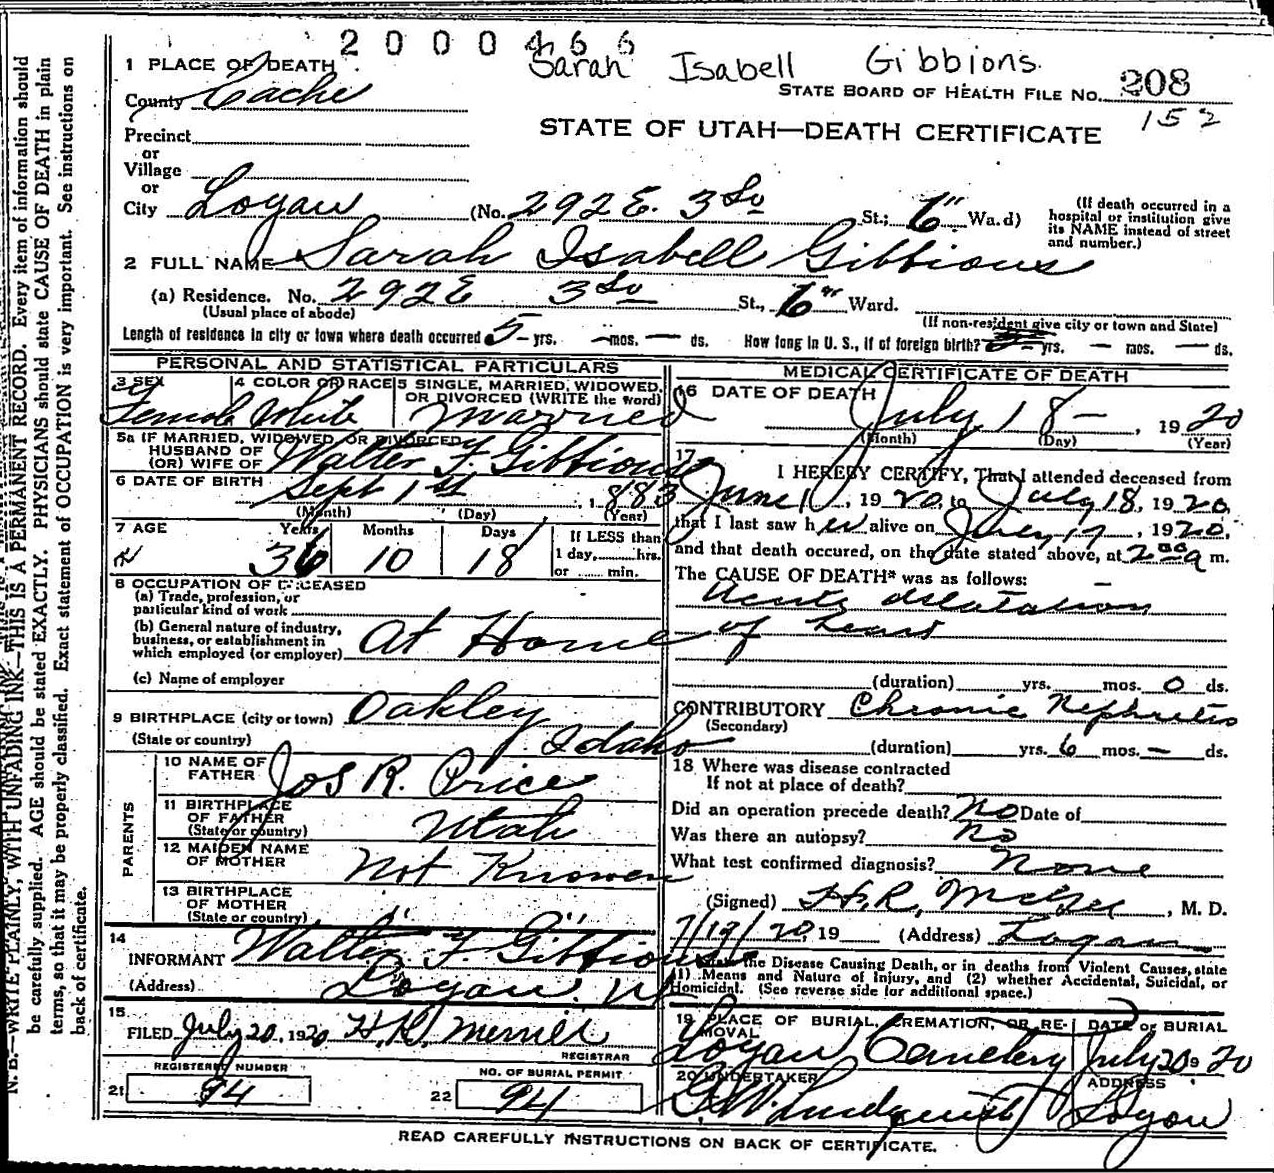 2000466
Sarah Isabell Gibbions
1 PLACE OF DEATH
County Cache
STATE BOARD OF HEALTH FILE No. 208
152
STATE OF UTAH—DEATH CERTIFICATE
Precinct
or
Village
or
City Logan (No. 292 E. 3 So St.; 6" Wa.d)
(If death occurred in a
hospital or institution give
its NAME instead of street
and number.)
2 FULL NAME Sarah Isabell Gibbions
(a) Residence. No. 292 E 3 So St., 6" Ward.
(Usual place of abode)
(If non-resident give city or town and State)
Length of residence in city or town where death occurred 5 - yrs. - mos. - ds. How long in U. S., if of foreign birth? yrs. - mos. - ds.
PERSONAL AND STATISTICAL PARTICULARS
3 SEX 4 COLOR OR RACE 5 SINGLE, MARRIED, WIDOWED,
OR DIVORCED (WRITE the word)
Female White Married
5a IF MARRIED, WIDOWED, OR DIVORCED
HUSBAND OF
(OR) WIFE OF Walter F. Gibbions
6 DATE OF BIRTH Sept 1st, 1883
(Month) (Day) (Year)
7 AGE Years Months Days If LESS than
1 day, hrs.
or min.
36 10 18
8 OCCUPATION OF DECEASED
(a) Trade, profession, or
particular kind of work
(b) General nature of industry,
business, or establishment in
which employed (or employer) At Home
(c) Name of employer
9 BIRTHPLACE (city or town) Oakley
(State or country) Idaho
PARENTS
10 NAME OF
FATHER Jos R. Price
11 BIRTHPLACE
OF FATHER
(State or country) Utah
12 MAIDEN NAME
OF MOTHER Not Knowen
13 BIRTHPLACE
OF MOTHER
(State or country) " "
14
INFORMANT Walter F. Gibbions
(Address) Logan. Ut
15
FILED July 20, 1920 H. R. Merrill
REGISTRAR
REGISTERED NUMBER
21 94
NO. OF BURIAL PERMIT
22 94
MEDICAL CERTIFICATE OF DEATH
16 DATE OF DEATH
July 18 -, 1920
(Month) (Day) (Year)
17
I HEREBY CERTIFY, That I attended deceased from
June 1, 1920, to July 18, 1920,
that I last saw her alive on July 17, 1920,
and that death occured, on the date stated above, at 2 00 a m.
The CAUSE OF DEATH* was as follows:
Acute dilatation
of heart
(duration) yrs. mos. 0 ds.
CONTRIBUTORY Chronic Nephritis
(Secondary)
(duration) yrs. 6 mos. - ds.
18 Where was disease contracted
If not at place of death?
Did an operation precede death? No Date of
Was there an autopsy? No
What test confirmed diagnosis? None
(Signed) H. R. McGee, M. D.
7/19/20, 19 (Address) Logan
the Disease Causing Death, or in deaths from Violent Causes, state
(1) Means and Nature of Injury, and (2) whether Accidental, Suicidal, or
Homicidal. (See reverse side for additional space.)
19 PLACE OF BURIAL, CREMATION, OR RE-
MOVAL
DATE of BURIAL
Logan Cemetery July 20 1920
20 UNDERTAKER ADDRESS
G. W. Lindquist Logan
READ CAREFULLY INSTRUCTIONS ON BACK OF CERTIFICATE.
N. B.—WRITE PLAINLY, WITH UNFADING INK—THIS IS A PERMANENT RECORD. Every item of information should
be carefully supplied. AGE should be stated EXACTLY. PHYSICIANS should state CAUSE OF DEATH in plain
terms, so that it may be properly classified. Exact statement of OCCUPATION is very important. See instructions on
back of certificate.